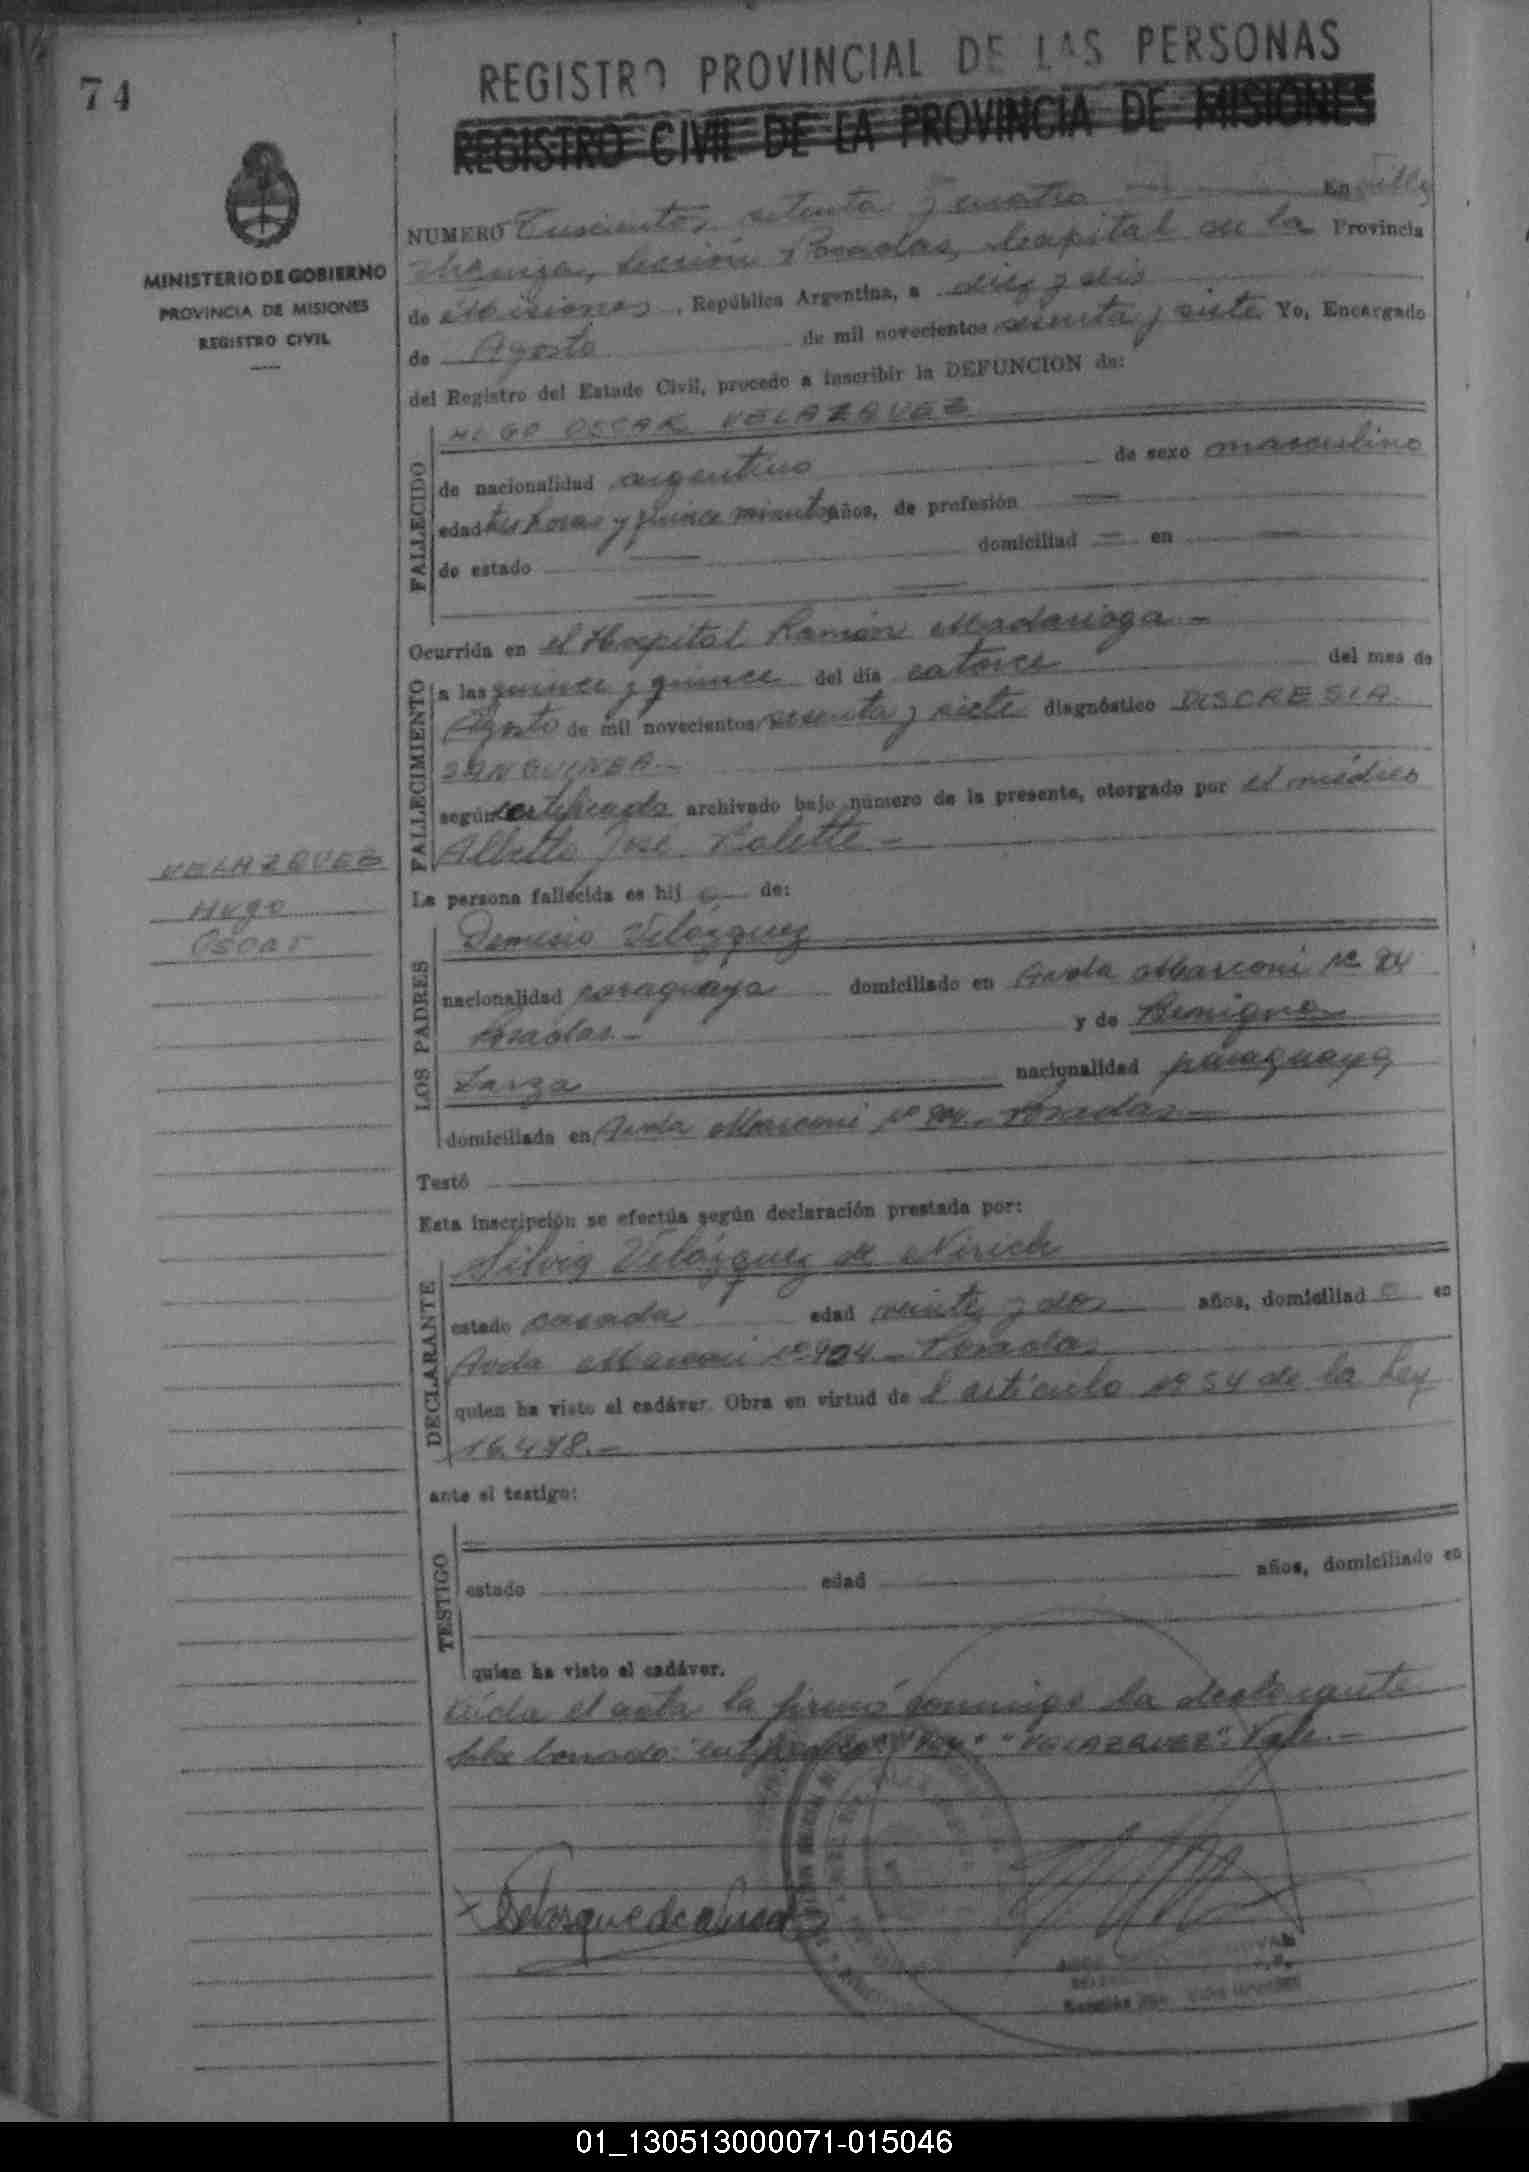 74
REGISTRO PROVINCIAL DE LAS PERSONAS
REGISTRO CIVIL DE LA PROVINCIA DE MISIONES
MINISTERIO DE GOBIERNO
PROVINCIA DE MISIONES
REGISTRO CIVIL
NUMERO Trescientos setenta y cuatro En Villa
Sección Posadas, Capital de la Provincia
de Misiones, República Argentina, a diez y seis
de Agosto de mil novecientos sesenta y siete Yo, Encargado
del Registro del Estado Civil, procedo a inscribir la DEFUNCION de:
FALLECIDO
HUGO OSCAR VELAZQUEZ
de nacionalidad argentino de sexo masculino
edad tres horas y quince minutos años, de profesión
de estado domiciliad en
Ocurrida en el Hospital Ramón Madariaga.-
FALLECIMIENTO
a las quince y quince del día catorce del mes de
Agosto de mil novecientos sesenta y siete diagnóstico DISCRESIA
SANGUINEA.-
según certificado archivado bajo número de la presente, otorgado por el médico
Alberto José -
VELAZQUEZ
Hugo
Oscar
La persona fallecida es hij o de:
LOS PADRES
Velázquez
nacionalidad paraguaya domiciliado en Avda Marconi Nº
Posadas.- y de Benigna
Zarza nacionalidad paraguaya
domiciliada en Avda Marconi Nº Posadas-
Testó
Esta inscripción se efectúa según declaración prestada por:
DECLARANTE
Silvia Velázquez de
estado casada edad veinte y dos años, domiciliad a en
Avda Marconi Nº 904 - Posadas
quien ha visto el cadáver. Obra en virtud de l artículo Nº 54 de la Ley
16.478.-
ante el testigo:
TESTIGO
estado edad años, domiciliado en
quien ha visto el cadáver.
Leída el acta la firmó conmigo la declarante
Sobre borrado: "VELAZQUEZ" Vale.-
01_130513000071-015046